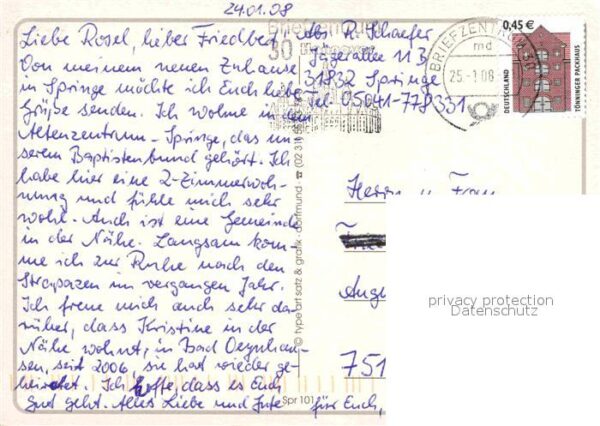 24.01.08
Liebe Rosel, lieber Friedbert,
Von meinem neuen Zuhause
in Springe möchte ich Euch liebe
Grüße senden. Ich wohne in dem
Altenzentrum - Springe, das un-
serem Baptistenbund gehört. Ich
habe hier eine 2-Zimmerwoh-
nung und fühle mich sehr
wohl. Auch ist eine Gemeinde
in der Nähe. Langsam kom-
me ich zur Ruhe nach den
Strapazen im vergangen Jahr.
Ich freue mich auch sehr da-
rüber, dass Kristine in der
Nähe wohnt, in Bad Oeynhau-
sen, seit 2006 sie hat wieder ge-
heiratet. Ich hoffe, dass es Euch
gut geht. Alles Liebe und Gute
für Euch,
Abs. R. Schaefer
Jägerallee 11 B
31832 Springe
Tel. 05041-778331
Briefzentrum
30
BRIEFZENTRUM 30
md
25.-1.08
0,45 €
DEUTSCHLAND
TÖNNINGER PACKHAUS
Herrn u. Frau
Aug
751
© type art satz & grafik · dortmund · ☎ (02 31)
Spr 101
privacy protection
Datenschutz